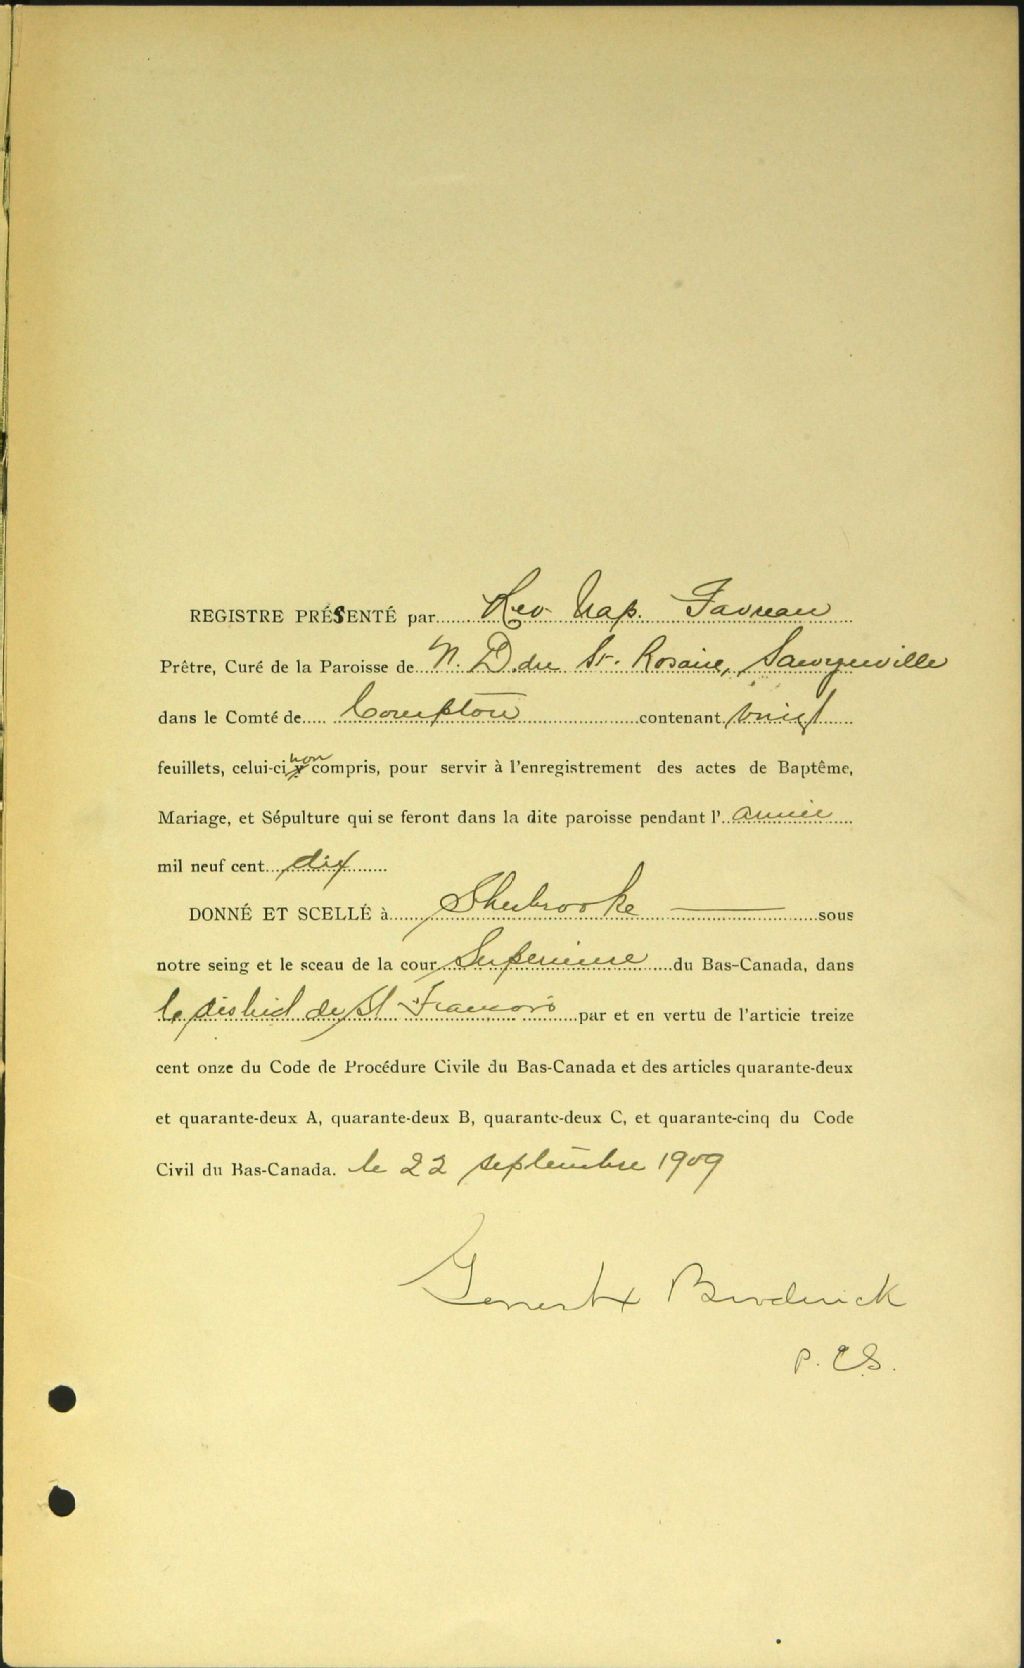 REGISTRE PRÉSENTÉ par Rev. Nap. Favreau
Prêtre, Curé de la Paroisse de N. D. du St. Rosaire, Sawyerville
dans le Comté de Compton contenant vingt
feuillets, celui-ci non compris, pour servir à l'enregistrement des actes de Baptême,
Mariage, et Sépulture qui se feront dans la dite paroisse pendant l'année
mil neuf cent dix
DONNÉ ET SCELLÉ à Sherbrooke sous
notre seing et le sceau de la cour Superieure du Bas-Canada, dans
le district de St Francois par et en vertu de l'articie treize
cent onze du Code de Procédure Civile du Bas-Canada et des articles quarante-deux
et quarante-deux A, quarante-deux B, quarante-deux C, et quarante-cinq du Code
Civil du Bas-Canada. le 22 septembre 1909
Genest & Broderick
P. C.S.